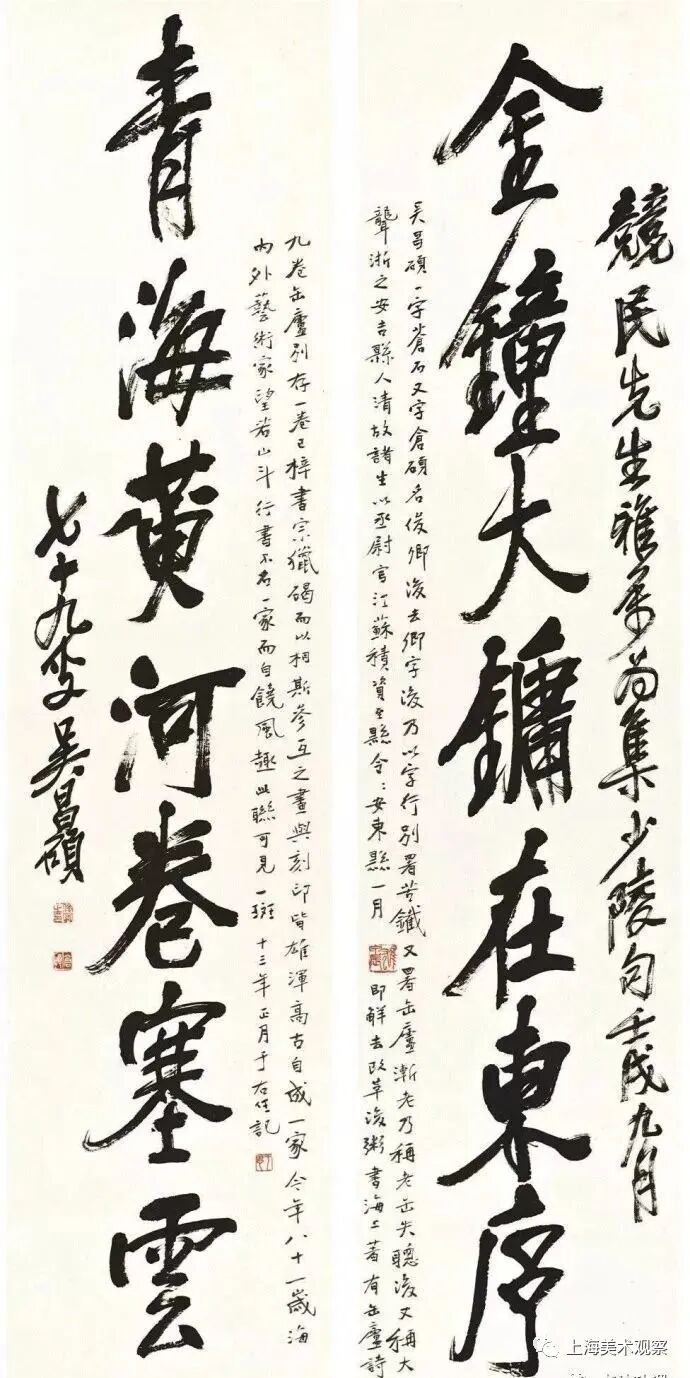 競民先生雅屬為集少陵句壬戌九月
金鐘大鏞在東序
吳昌碩一字蒼石又字倉碩名俊卿後去卿字後乃以字行別署苦鐵又署缶廬漸老乃稱老缶失聰後又稱大
聾浙之安吉縣人清故諸生以丞尉官江蘇積資至縣令：安東縣一月即解去改革後鬻書海上著有缶廬詩
九卷缶廬別存一卷已梓書宗獵碣而以相斯參互之畫與刻印皆雄渾高古自成一家今年八十一歲海
內外藝術家望若山斗行書不名一家而自饒風趣此聯可見一斑十三年正月于右任記
青海黃河卷塞雲
七十九叟吳昌碩
上海美术观察